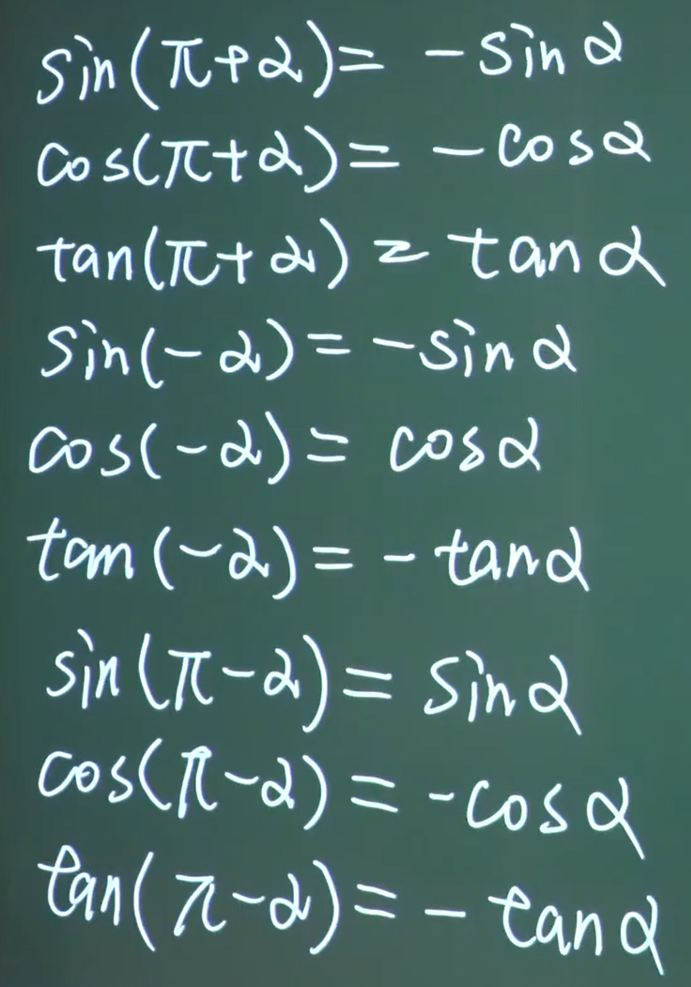 sin(π+α)= -sinα
cos(π+α)= -cosα
tan(π+α)= tanα
sin(-α)= -sinα
cos(-α)= cosα
tan(-α)= -tanα
sin(π-α)= sinα
cos(π-α)= -cosα
tan(π-α)= -tanα